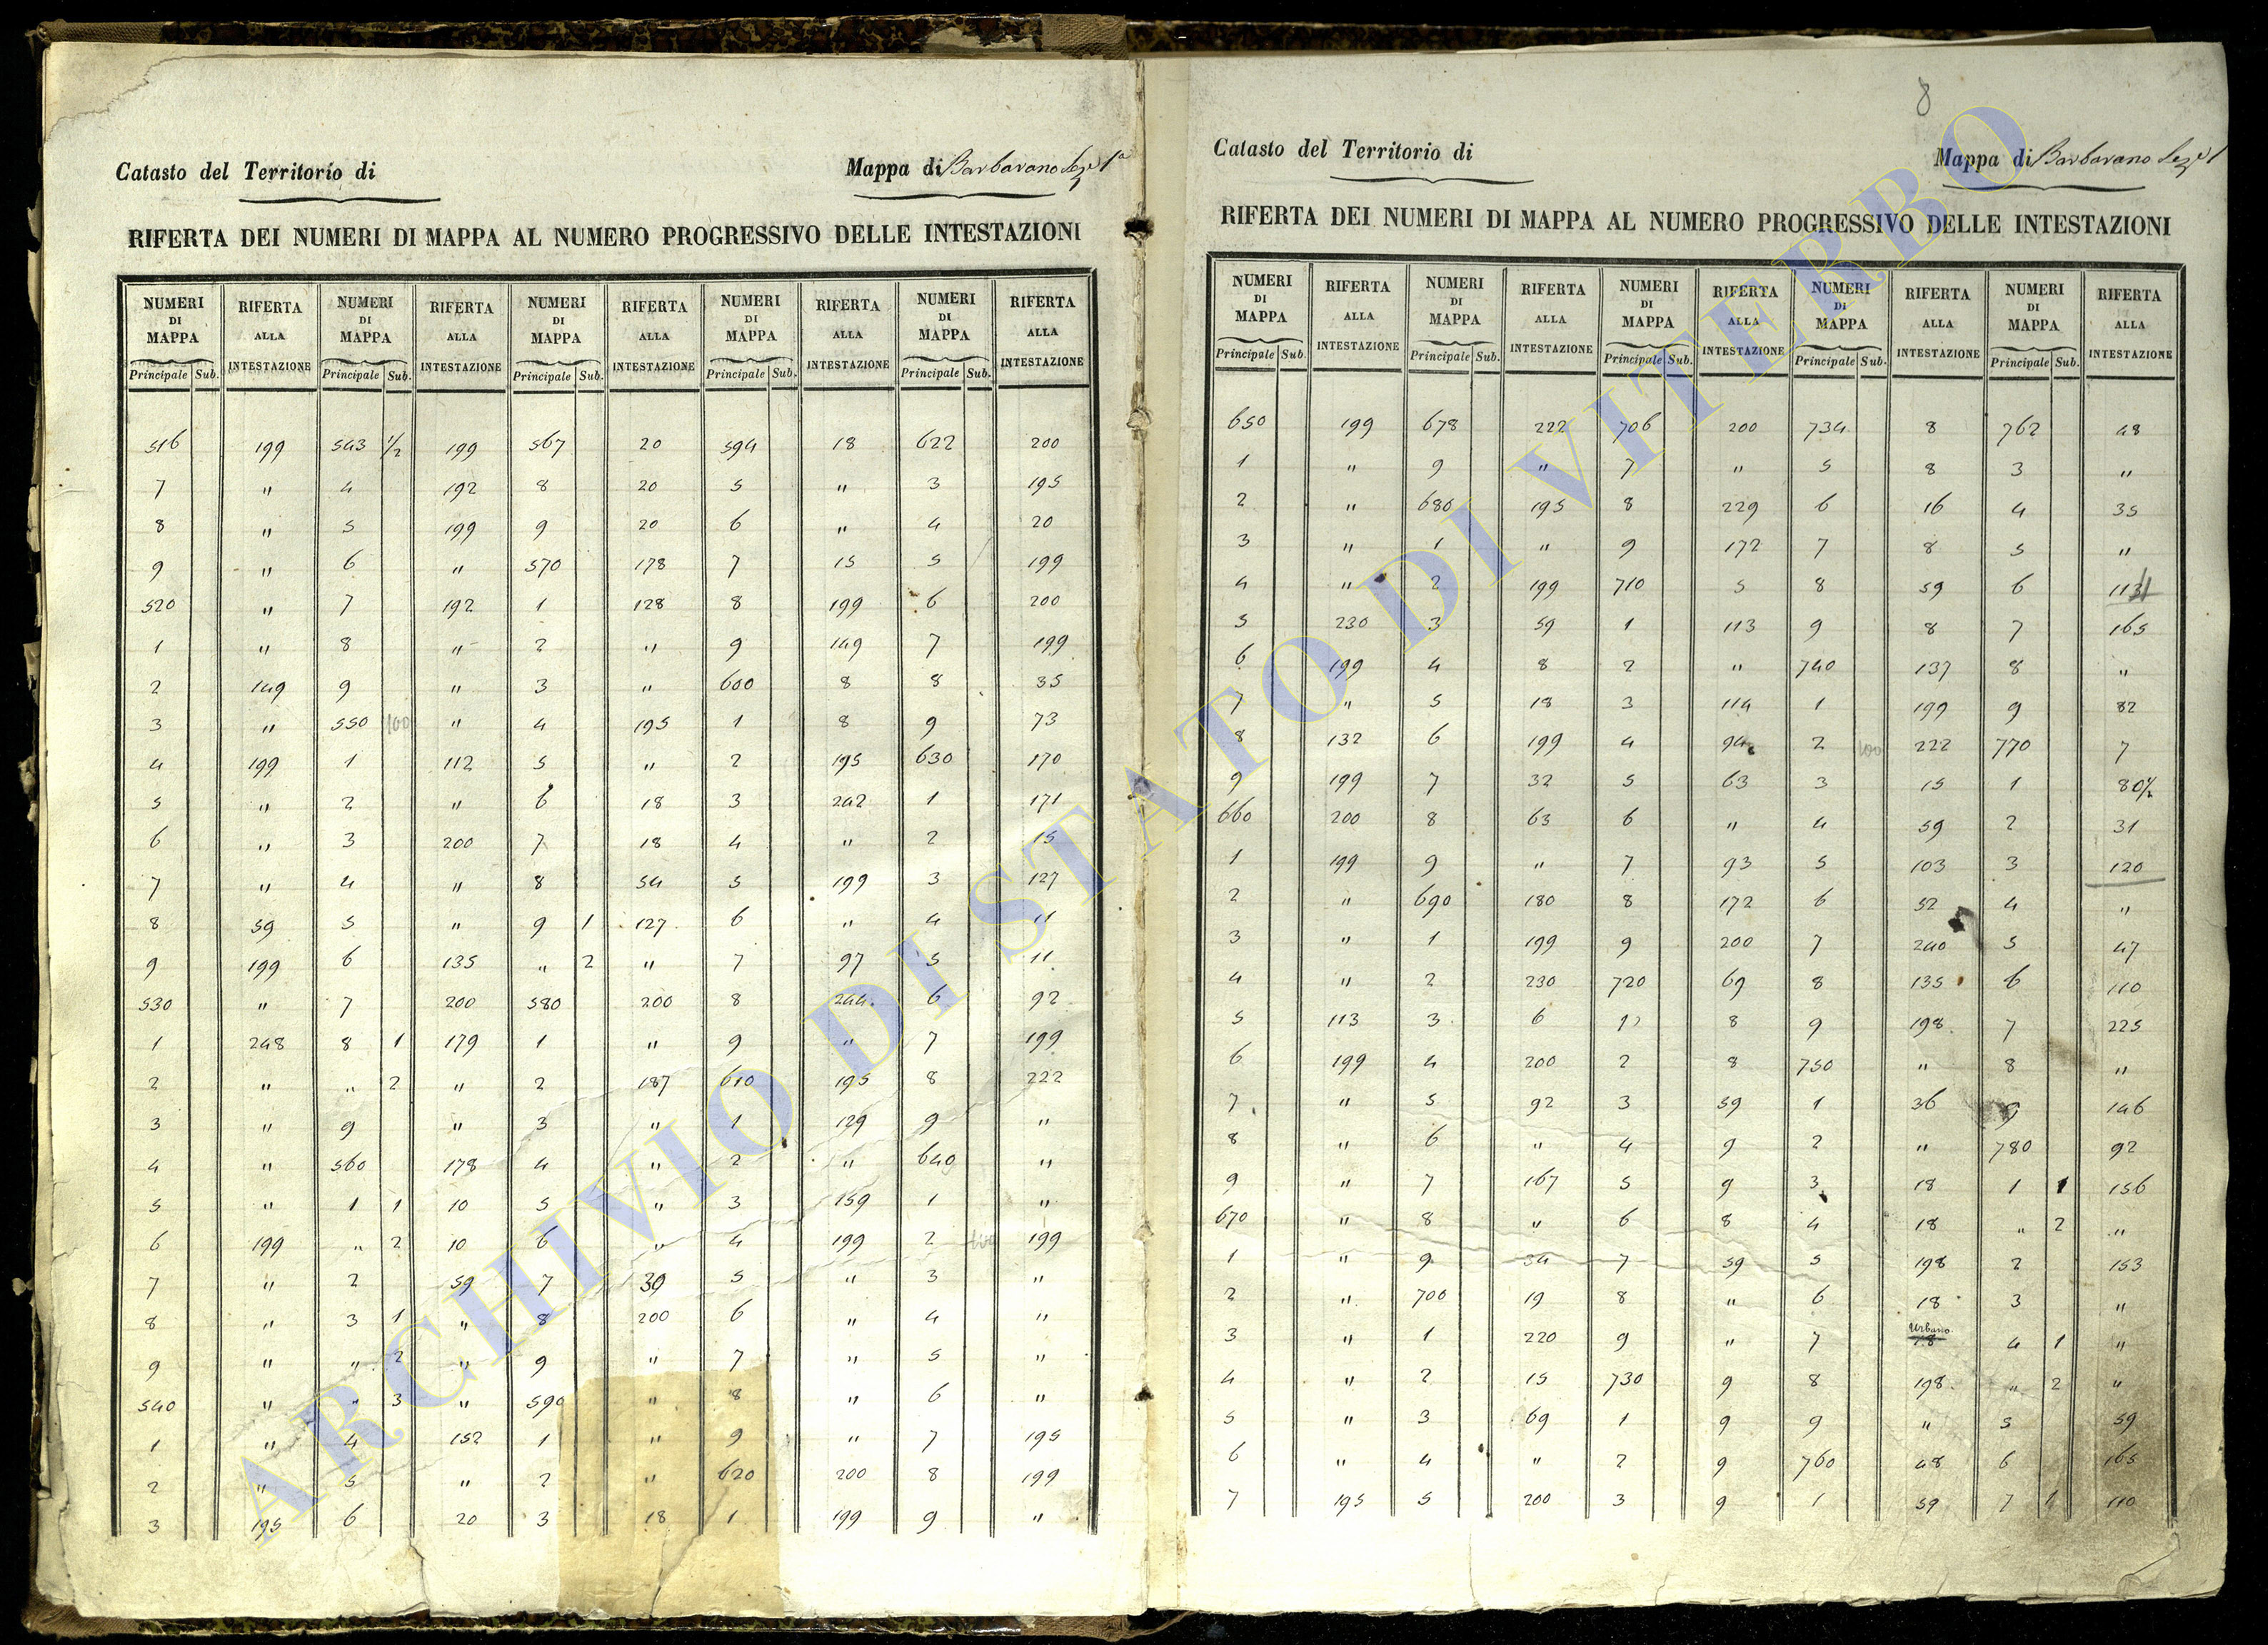 8
Catasto del Territorio di Mappa di Barbarano Sez.e 1a
RIFERTA DEI NUMERI DI MAPPA AL NUMERO PROGRESSIVO DELLE INTESTAZIONI
NUMERI DI MAPPA RIFERTA ALLA INTESTAZIONE NUMERI DI MAPPA RIFERTA ALLA INTESTAZIONE NUMERI DI MAPPA RIFERTA ALLA INTESTAZIONE NUMERI DI MAPPA RIFERTA ALLA INTESTAZIONE NUMERI DI MAPPA RIFERTA ALLA INTESTAZIONE
Principale Sub. Principale Sub. Principale Sub. Principale Sub. Principale Sub.
516 199 543 1/2 199 567 20 594 18 622 200
7 " 4 192 8 20 5 " 3 195
8 " 5 199 9 20 6 " 4 20
9 " 6 " 570 178 7 15 5 199
520 " 7 192 1 128 8 199 6 200
1 " 8 " 2 " 9 149 7 199
2 149 9 " 3 " 600 8 8 35
3 " 550 100 " 4 195 1 8 9 73
4 199 1 112 5 " 2 195 630 170
5 " 2 " 6 18 3 242 1 171
6 " 3 200 7 18 4 " 2 15
7 " 4 " 8 54 5 199 3 127
8 59 5 " 9 1 127 6 " 4 11
9 199 6 135 " 2 " 7 97 5 11
530 " 7 200 580 200 8 244 6 92
1 248 8 1 179 1 " 9 " 7 199
2 " " 2 " 2 187 610 195 8 222
3 " 9 " 3 " 1 129 9 "
4 " 560 178 4 " 2 " 640 "
5 " 1 1 10 5 " 3 159 1 "
6 199 " 2 10 6 " 4 199 2 100 199
7 " 2 59 7 30 5 " 3 "
8 " 3 1 " 8 200 6 " 4 "
9 " " 2 " 9 " 7 " 5 "
540 " " 3 " 590 " 8 " 6 "
1 " 4 152 1 " 9 " 7 195
2 " 5 " 2 " 620 200 8 199
3 195 6 20 3 18 1 199 9 "
Catasto del Territorio di Mappa di Barbarano Sez.e 1
RIFERTA DEI NUMERI DI MAPPA AL NUMERO PROGRESSIVO DELLE INTESTAZIONI
NUMERI DI MAPPA RIFERTA ALLA INTESTAZIONE NUMERI DI MAPPA RIFERTA ALLA INTESTAZIONE NUMERI DI MAPPA RIFERTA ALLA INTESTAZIONE NUMERI DI MAPPA RIFERTA ALLA INTESTAZIONE NUMERI DI MAPPA RIFERTA ALLA INTESTAZIONE
Principale Sub. Principale Sub. Principale Sub. Principale Sub. Principale Sub.
650 199 678 222 706 200 734 8 762 48
1 " 9 " 7 " 5 8 3 "
2 " 680 195 8 229 6 16 4 35
3 " 1 " 9 172 7 8 5 "
4 " 2 199 710 5 8 59 6
5 230 3 59 1 113 9 8 7 165
6 199 4 8 2 " 740 137 8 "
7 " 5 18 3 114 1 199 9 82
8 132 6 199 4 94 2 100 222 770 7
9 199 7 32 5 63 3 15 1 80 1/2
660 200 8 63 6 " 4 59 2 31
1 199 9 " 7 93 5 103 3 120
2 " 690 180 8 172 6 52 4 "
3 " 1 199 9 200 7 240 5 47
4 " 2 230 720 69 8 135 6 110
5 113 3 6 1 8 9 198 7 225
6 199 4 200 2 8 750 " 8 "
7 " 5 92 3 59 1 36 9 146
8 " 6 " 4 9 2 " 780 92
9 " 7 167 5 9 3 18 1 1 156
670 " 8 " 6 8 4 18 " 2 "
1 " 9 34 7 59 5 198 2 153
2 " 700 19 8 " 6 18 3 "
3 " 1 220 9 " 7 Urbano 18 4 1 "
4 " 2 15 730 9 8 198 " 2 "
5 " 3 69 1 9 9 " 5 59
6 " 4 " 2 9 760 48 6 165
7 195 5 200 3 9 1 59 7 1 110
ARCHIVIO DI STATO DI VITERBO